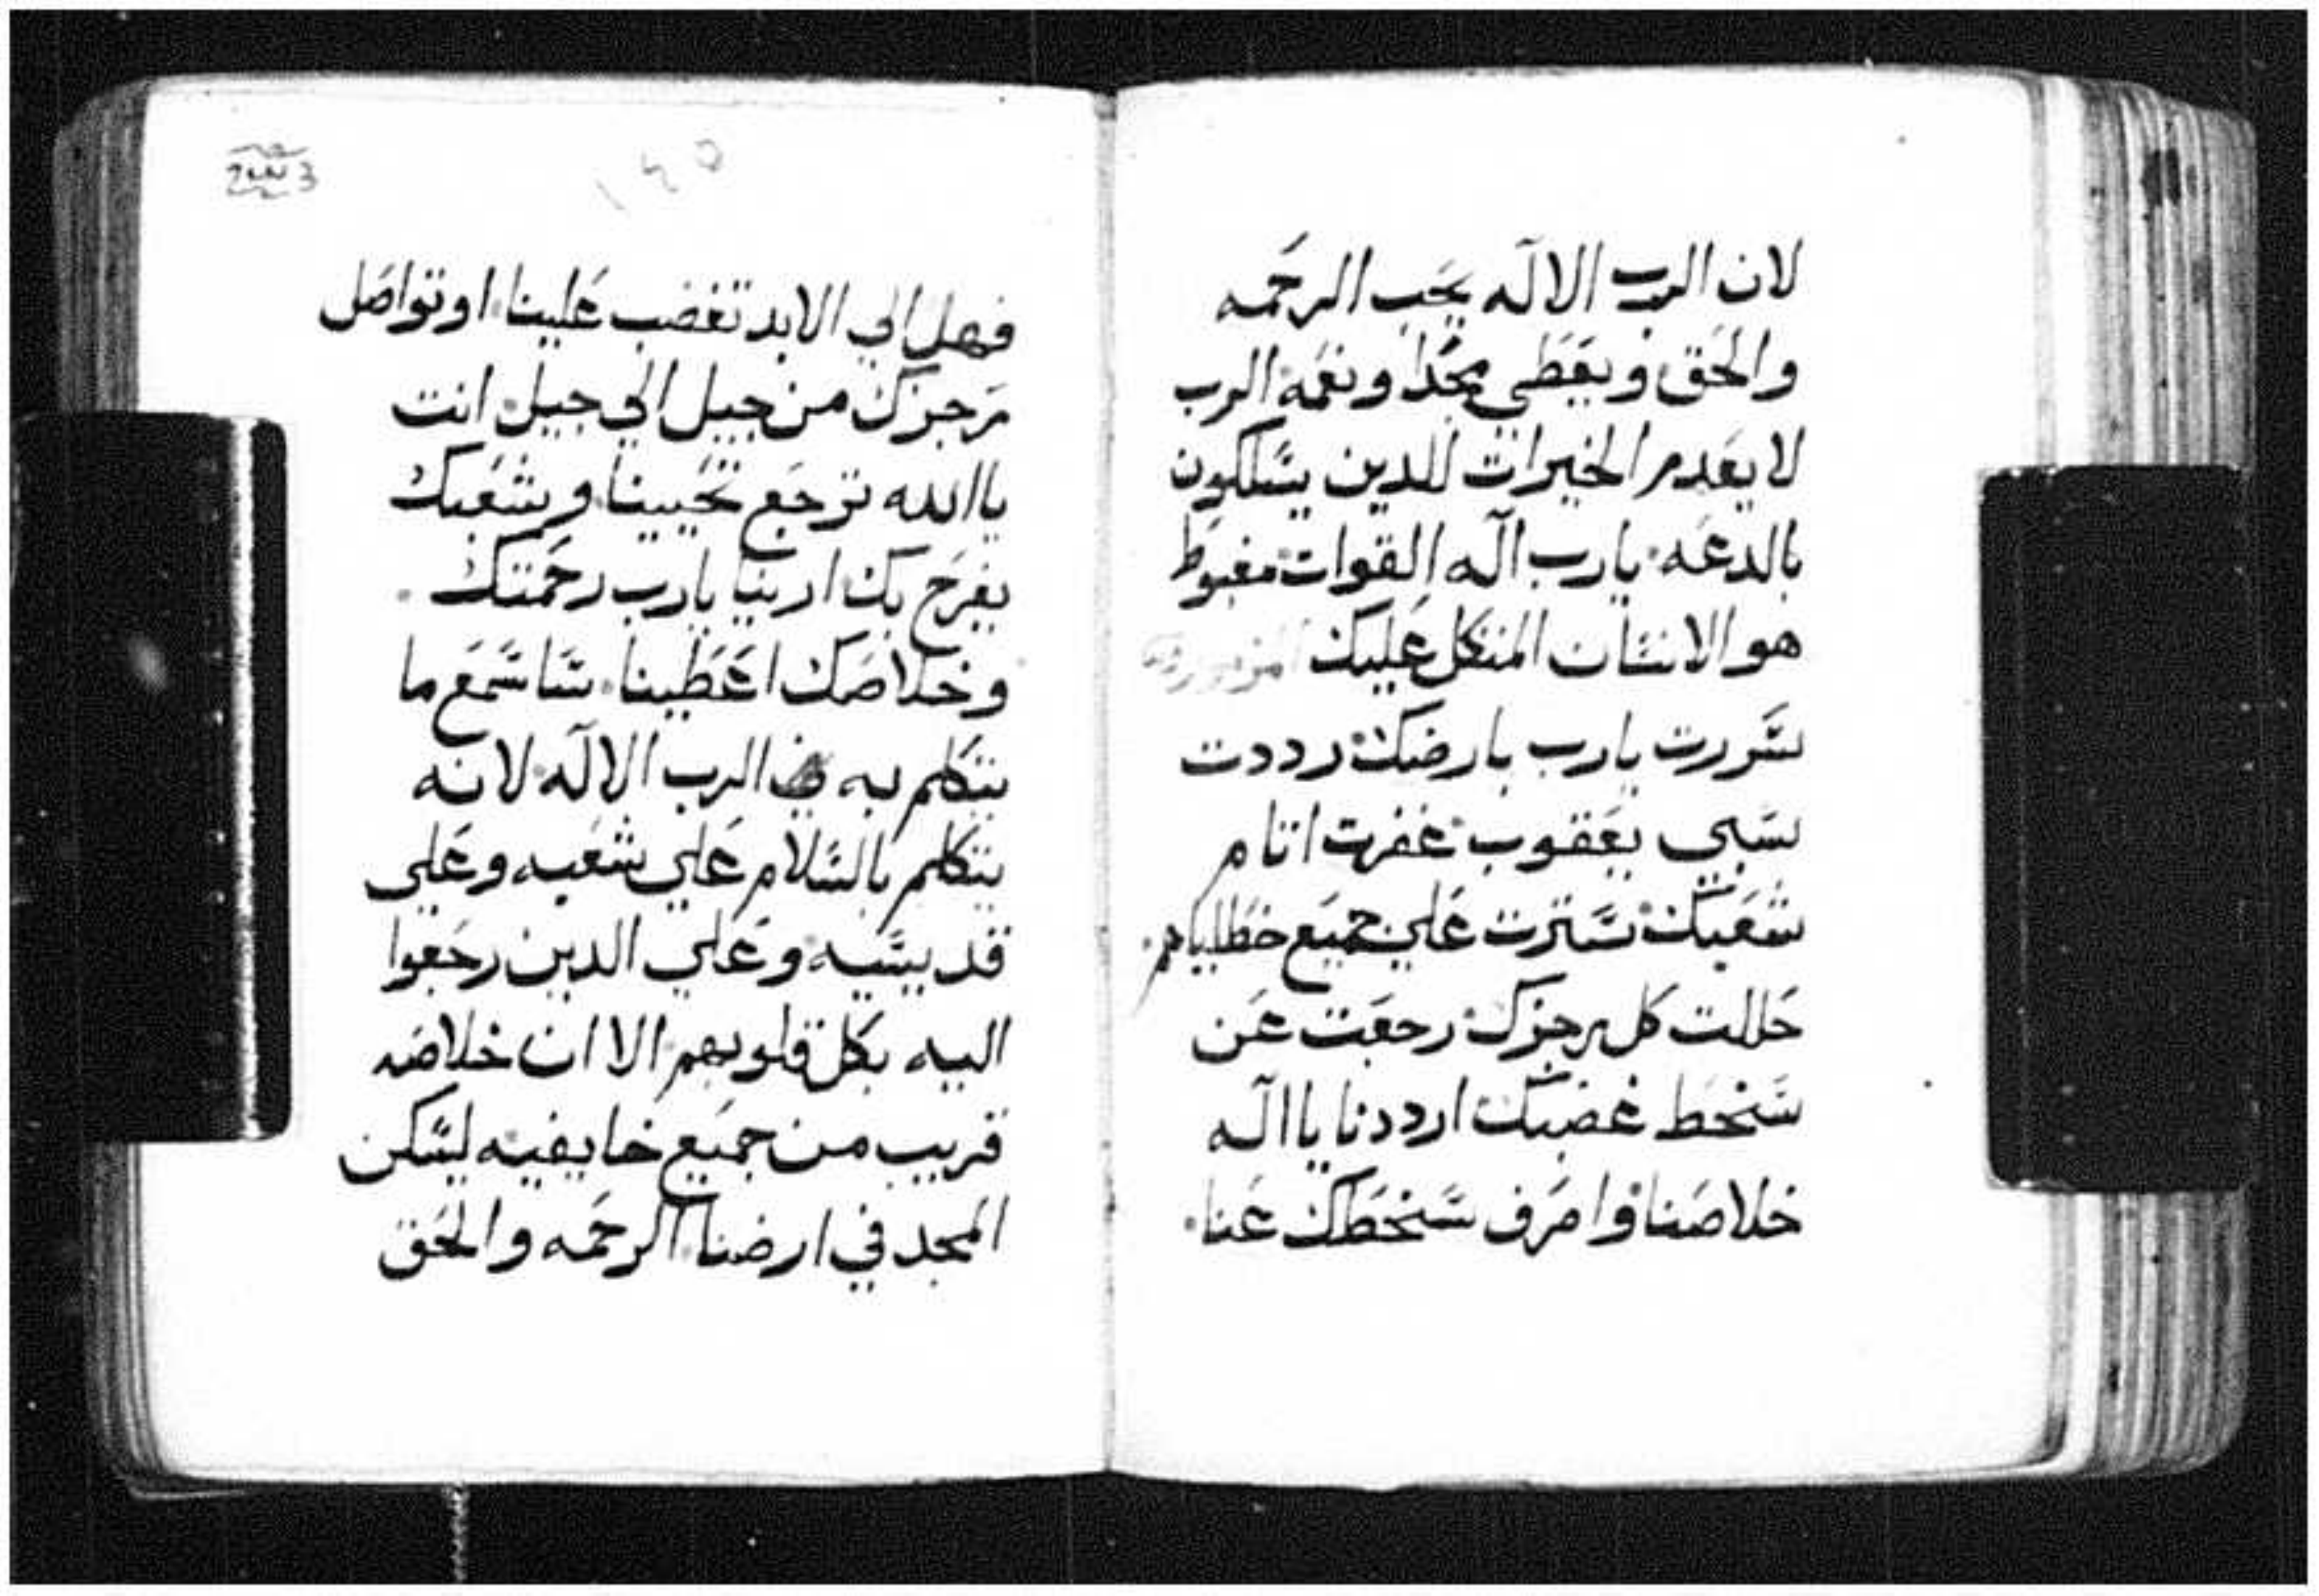 لان الرب الاله يحب الرحمه
والحق ويعطي مجدا ونعمه الرب
لا يعدم الخيرات للدين يسلكون
بالدعه يارب اله القوات مغبوط
هو الانسان المتكل عليك
سررت يارب بارضك رددت
سبي يعقوب غفرت اتام
شعبك سترت علي جميع خطاياهم
حللت كل رجزك رجعت عن
سخط غضبك ارددنا يا اله
خلاصنا واصرف سخطك عنا
١٤٥
فهل الي الابد تغضب علينا او تواصل
رجزك من جيل الي جيل انت
ياالله ترجع تحيينا وشعبك
يفرح بك ارينا يارب رحمتك
وخلاصك اعطينا ساسمع ما
يتكلم به في الرب الاله لانه
يتكلم بالسلام علي شعبه وعلي
قديسيه وعلي الدين رجعوا
اليه بكل قلوبهم الا ان خلاصه
قريب من جميع خايفيه ليسكن
المجد في ارضنا الرحمه والحق